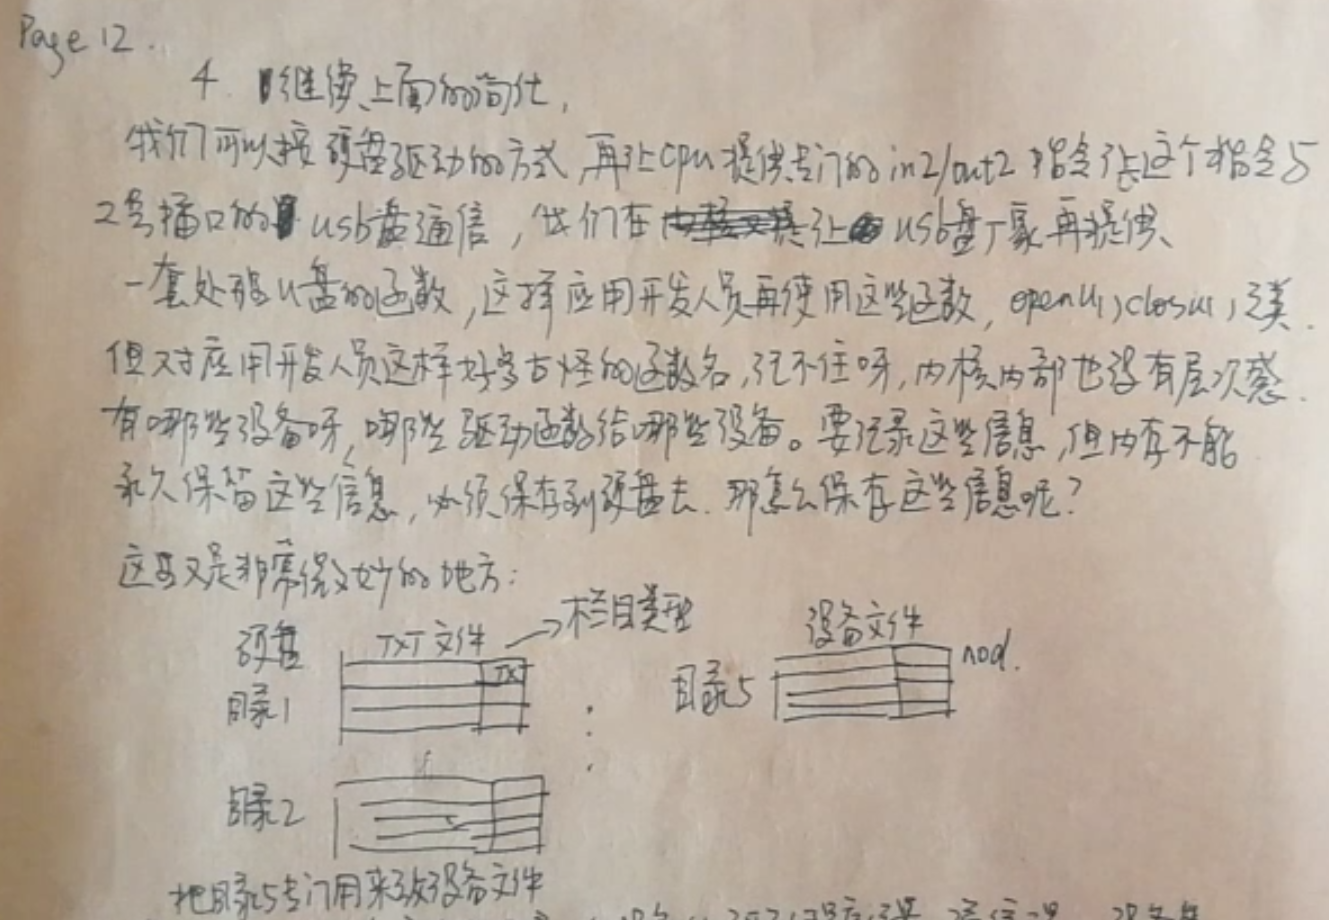 Page 12.
4. 继续上面的简化,
我们可以按硬盘驱动的方式,再让cpu提供专门的in2/out2指令,让这个指令与
2号插口的usb盘通信,我们在让usb盘厂家再提供
一套处理u盘的函数,这样应用开发人员再使用这些函数,openu,closeu,之类.
但对应用开发人员这样好多古怪的函数名,记不住呀,内核内部也没有层次感.
有哪些设备呀,哪些驱动函数给哪些设备。要记录这些信息,但内存不能
永久保留这些信息,必须保存到硬盘去.那怎么保存这些信息呢?
这里又是非常微妙的地方:
硬盘 TXT文件 →栏目类型 设备文件
TXT nod.
目录1 目录5
目录2
把目录5专门用来放设备文件